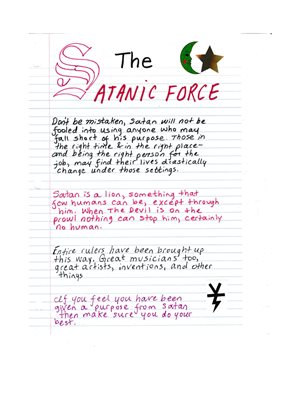 The
SATANIC FORCE
Don't be mistaken, Satan will not be
fooled into using anyone who may
fall short of his purpose. Those in
the right time & in the right place-
and being the right person for the
job, may find their lives drastically
change under those settings.
Satan is a lion, something that
few humans can be, except through
him. When The Devil is on the
prowl nothing can stop him, certainly
no human.
Entire rulers have been brought up
this way. Great musicians too,
great artists, inventions, and other
things
If you feel you have been
given a purpose from Satan
then make sure you do your
best.